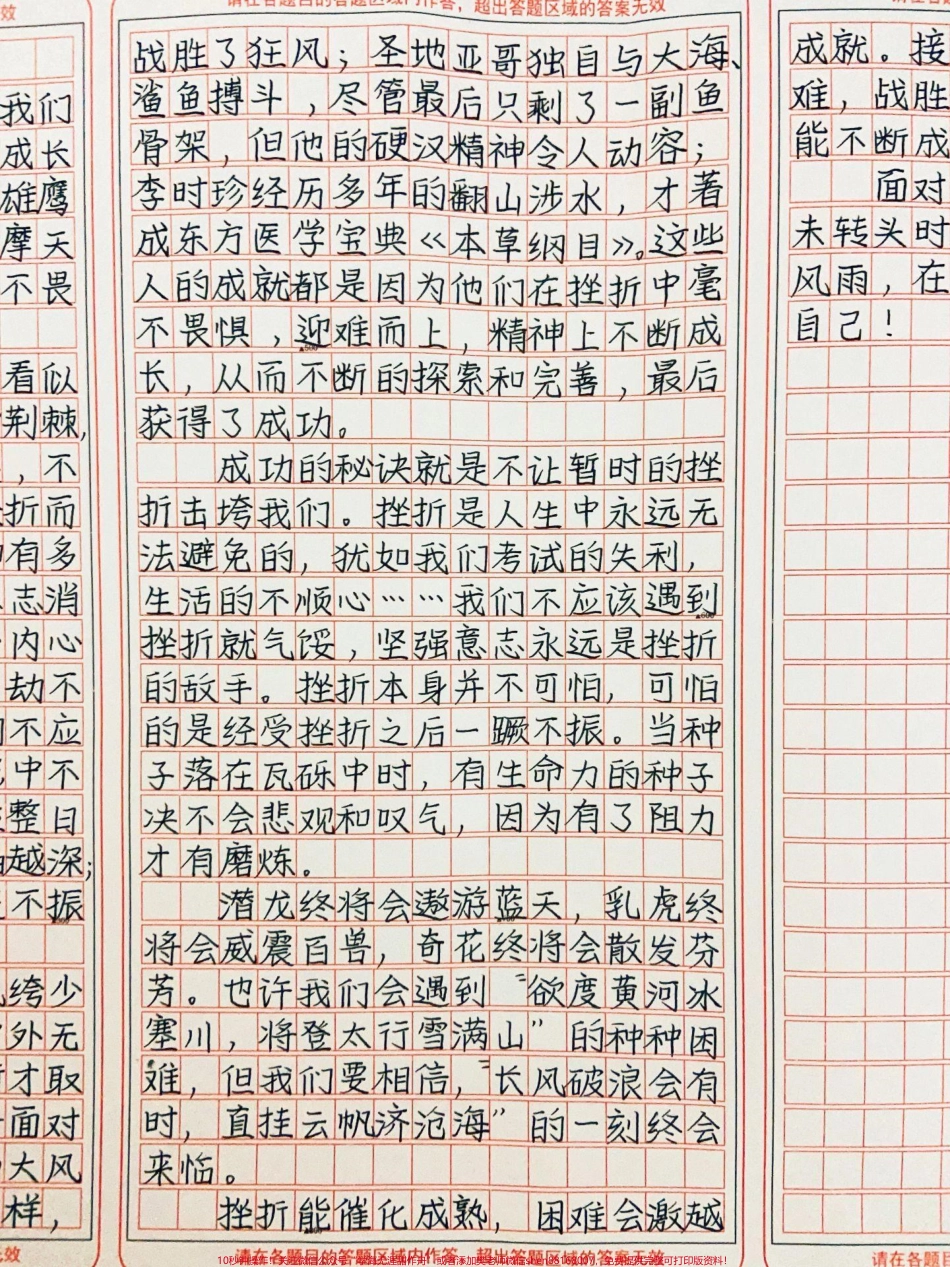 效
我们
成长
雄鹰
摩天
不畏
看似
荆棘,
,不
折而
有多
志消
内心
劫不
不应
中不
整日
越深;
不振
绔少
外无
才取
面对
大风
样,
效
请在各题目的答题区域内作答,超出答题区域的答案无效
战胜了狂风;圣地亚哥独自与大海、
鲨鱼搏斗,尽管最后只剩了一副鱼
骨架,但他的硬汉精神令人动容;
李时珍经历多年的翻山涉水,才著
成东方医学宝典《本草纲目》。这些
人的成就都是因为他们在挫折中毫
不畏惧,迎难而上,精神上不断成
长,从而不断的探索和完善,最后
获得了成功。
成功的秘诀就是不让暂时的挫
折击垮我们。挫折是人生中永远无
法避免的,犹如我们考试的失利,
生活的不顺心……我们不应该遇到
挫折就气馁,坚强意志永远是挫折
的敌手。挫折本身并不可怕,可怕
的是经受挫折之后一蹶不振。当种
子落在瓦砾中时,有生命力的种子
决不会悲观和叹气,因为有了阻力
才有磨炼。
潜龙终将会遨游蓝天,乳虎终
将会威震百兽,奇花终将会散发芬
芳。也许我们会遇到“欲度黄河冰
塞川,将登太行雪满山”的种种困
难,但我们要相信,“长风破浪会有
时,直挂云帆济沧海”的一刻终会
来临。
挫折能催化成熟,困难会激越
请在各题目的答题区域内作答,超出答题区域的答案无效
成就。接
难,战胜
能不断成
面对
未转头时
风雨,在
自己!
请在各题